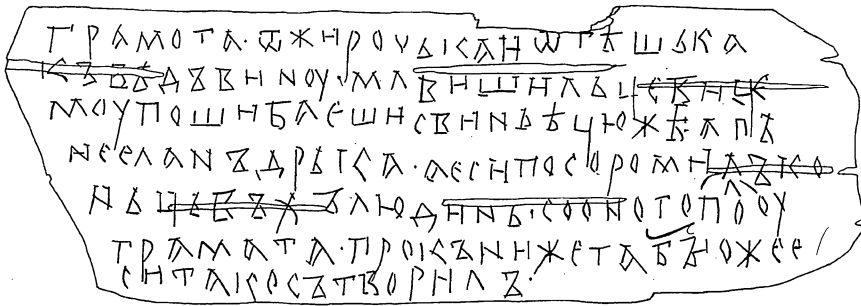 ГРАМОТА·ѾЖИРОЧЬКАИѾТѢШЬКА
КЪВЪДЪВИНОУ·МЛВИШИЛЬЦЕВИЦЕ
МОУПОШИБАЕШИСВИНЬѢЦЮЖѢАПЪ
NЕСЛАNЪДРЬКА·АЕСИПОСОРОМИЛЪКО
НЬЦЬВЬХЪЛЮДИНЬ·СООНОГОПОЛОУ
ГРАМАТА·ПРОКЪНИЖЕТАБЪОЖЕЕ
СИТАКОСЪТВОРИЛЪ·